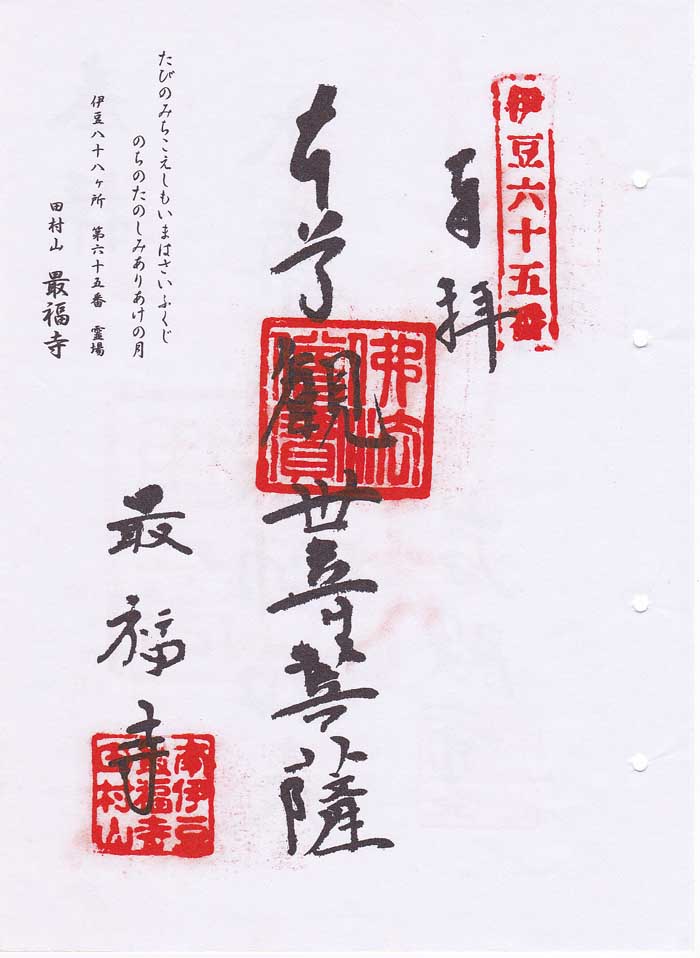 伊豆六十五番
奉拝
本尊
観世音菩薩
佛法僧寳
最福寺
南伊豆
最福寺
田村山
たびのみちこえしもいまはさいふくじ
のちのたのしみありあけの月
伊豆八十八ヶ所 第六十五番 霊場
田村山 最福寺